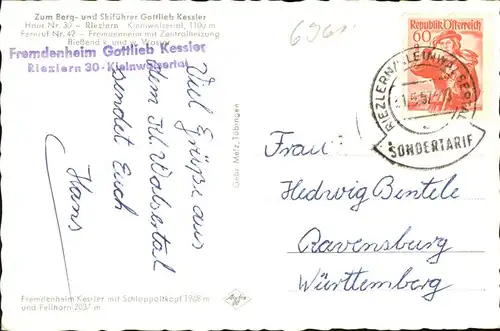 Zum Berg- und Skiführer Gottlieb Kessler
Haus Nr. 30 - Riezlern Kleinwalsertal, 1100 m
Fernruf Nr. 42 - Fremdenheim mit Zentralheizung
Fließend k. und w. Wasser
Fremdenheim Gottlieb Kessler
Riezlern 30 - Kleinwalsertal
Viel Grüße aus
dem Kl. Walsertal
sendet Euch
Hans
Fremdenheim Kessler mit Schlappoltkopf 1968 m
und Fellhorn 2037 m
Gebr. Metz, Tübingen
Republik Österreich
60
SONDERTARIF
Frau
Hedwig Bentele
Ravensburg
Württemberg